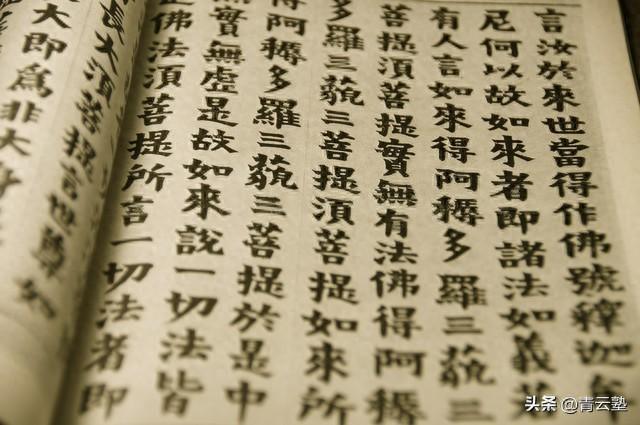 言汝於來世當得作佛號釋迦牟
尼何以故如來者即諸法如義若
有人言如來得阿耨多羅三藐三
菩提須菩提實無有法佛得阿耨
多羅三藐三菩提須菩提如來所
得阿耨多羅三藐三菩提於是中
無實無虛是故如來說一切法皆
是佛法須菩提所言一切法者即
長大須菩提言世尊如
大即為非大身
头条 @青云塾